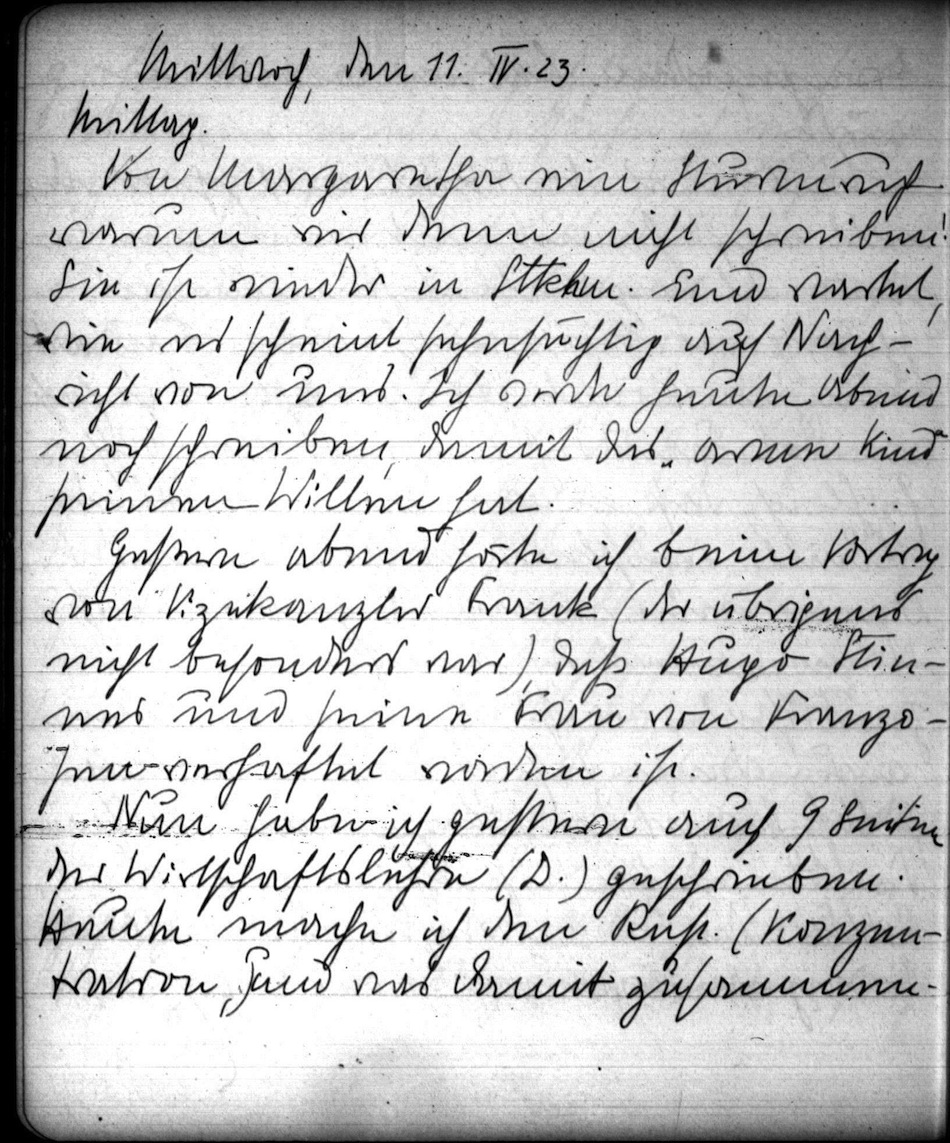 Mittwoch, den 11. IV. 23.
Mittag.
Von Margaretha ein Sturmruf
warum wir denn nicht schreiben!
Sie ist wieder in Und wartet,
wie es scheint sehnsüchtig auf Nach-
richt von uns. Ich werde heute Abend
noch schreiben, damit das arme Kind
seinen Willen hat.
Gestern abend hörte ich beim Vortrag
von Vizekanzler Frank (der übrigens
nicht besonders war), daß Hugo Stin-
nes und seine Frau von Franzo-
sen verhaftet worden ist.
Nun habe ich gestern auch 9 Seiten
der Wirtschaftslehre (D.) geschrieben.
Heute mache ich den Rest. (Konzen-
tration, und was damit zusammen-